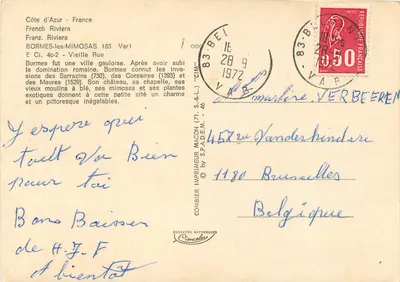 Côte d'Azur - France
French Riviera
Franz. Riviera
BORMES-les-MIMOSAS (83. Var)
E Ci. 4c-2 - Vieille Rue
Bormes fut une ville gauloise. Après avoir subi
la domination romaine, Bormes connut les invasions
des Sarrazins (730), des Corsaires (1393) et
des Maures (1529). Son château, sa chapelle, ses
vieux moulins à blé, ses mimosas et ses plantes
exotiques donnent à cette petite cité un charme
et un pittoresque inégalables.
J'espère que
tout Va Bien
pour toi
Bons Baisser
de H.J.F
A bientôt
COMBIER IMPRIMEUR MACON (71. S.-&-L.) "CIM"
© by S.P.A.D.E.M. - 46
COULEURS NATURELLES
Cimcolor
83-BE
16
28-9
1972
VAR
83-B
28
VAR
0,50
VERBEEREN
457 rue Vanderkindere
1180 Bruxelles
Belgique